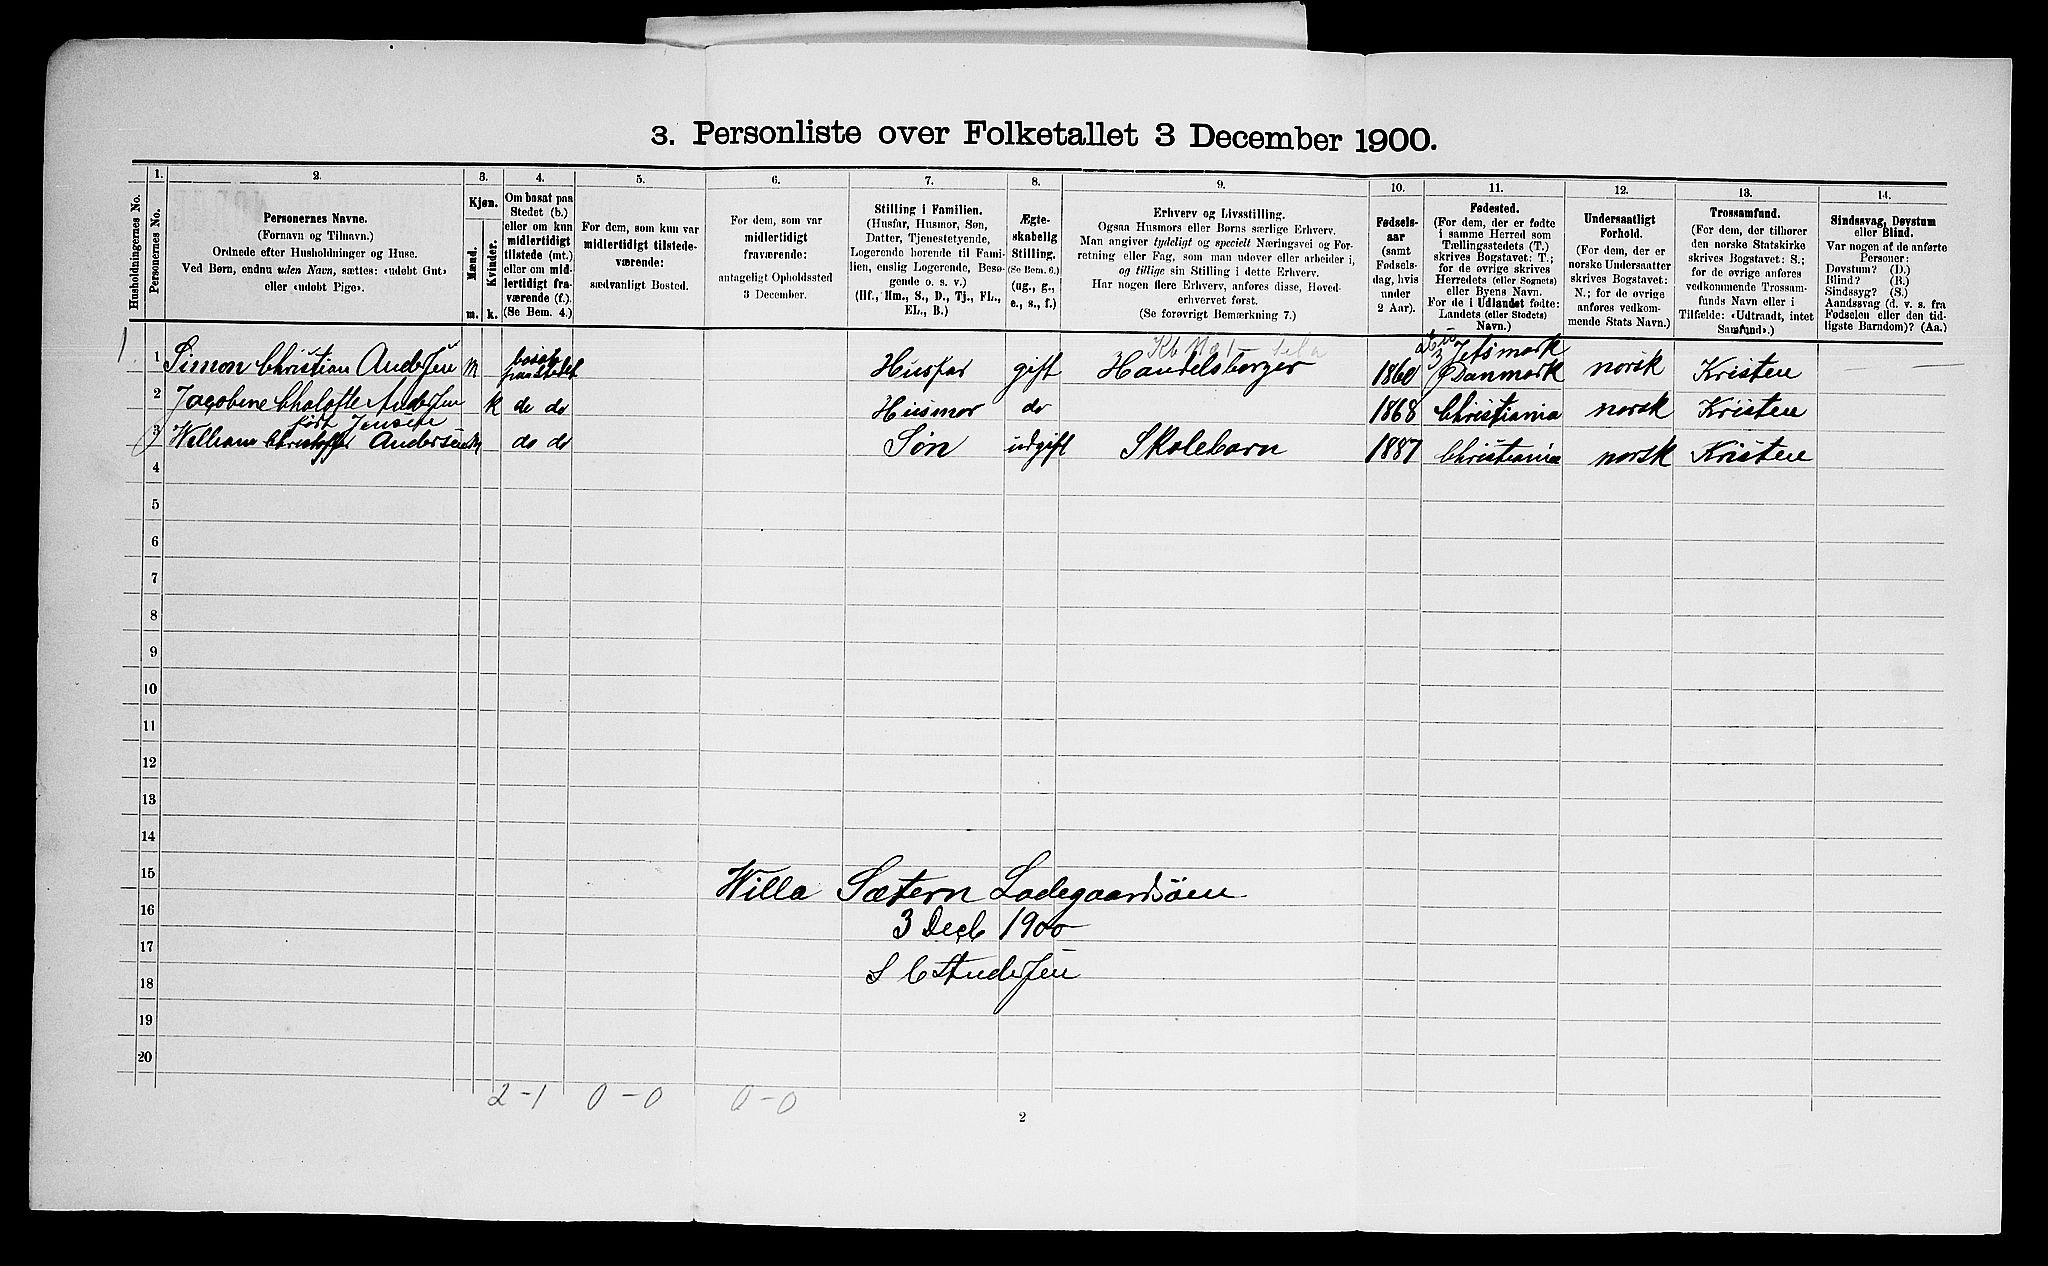 3. Personliste over Folketallet 3 December 1900.
Husholdningernes No.
1.
Personernes No.
2.
Personernes Navne.
(Fornavn og Tilnavn.)
Ordnede efter Husholdninger og Huse.
Ved Børn, endnu uden Navn, sættes: «udøbt Gut»
eller «udøbt Pige».
3.
Kjøn.
Mænd.
Kvinder.
m. k.
4.
Om bosat paa
Stedet (b.)
eller om kun
midlertidigt
tilstede (mt.)
eller om mid-
lertidigt fra-
værende (f.).
(Se Bem. 4.)
5.
For dem, som kun var
midlertidigt tilstede-
værende:
sædvanligt Bosted.
6.
For dem, som var
midlertidigt
fraværende:
antageligt Opholdssted
3 December.
7.
Stilling i Familien.
(Husfar, Husmor, Søn,
Datter, Tjenestetyende,
Logerende hørende til Fami-
lien, enslig Logerende, Besø-
gende o. s. v.)
(Hf., Hm., S., D., Tj., FL.,
EL., B.)
8.
Ægte-
skabelig
Stilling.
(Se Bem. 6.)
(ug., g.,
e., s., f.)
9.
Erhverv og Livsstilling.
Ogsaa Husmors eller Børns særlige Erhverv.
Man angiver tydeligt og specielt Næringsvei og For-
retning eller Fag, som man udøver eller arbeider i,
og tillige sin Stilling i dette Erhverv.
Har nogen flere Erhverv, anføres disse, Hoved-
erhvervet først.
(Se forøvrigt Bemærkning 7.)
10.
Fødsels-
aar
(samt
Fødsels-
dag, hvis
under
2 Aar).
11.
Fødested.
(For dem, der er fødte
i samme Herred som
Tællingsstedets (T.)
skrives Bogstavet: T.;
for de øvrige skrives
Herredets (eller Sognets)
eller Byens Navn.
For de i Udlandet fødte:
Landets (eller Stedets)
Navn.)
12.
Undersaatligt
Forhold.
(For dem, der er
norske Undersaatter
skrives Bogstavet:
N.; for de øvrige
anføres vedkom-
mende Stats Navn.)
13.
Trossamfund.
(For dem, der tilhører
den norske Statskirke
skrives Bogstavet: S.;
for de øvrige anføres
vedkommende Trossam-
funds Navn eller i
Tilfælde: «Udtraadt, intet
Samfund».)
14.
Sindssvag, Døvstum
eller Blind.
Var nogen af de anførte
Personer:
Døvstum? (D.)
Blind? (B.)
Sindssyg? (S.)
Aandssvag (d. v. s. fra
Fødselen eller den tid-
ligste Barndom)? (Aa.)
1 1 Simon Christian Andersen m bosat paa Stedet Husfar gift Handelsborger 1860 Jetsmark Danmark norsk Kristen
2 Jacobine Chalotte Andersen k do do Husmor do 1868 Christiania norsk Kristen
født Jensen
3 William Christoffer Andersen m do do Søn udgift Skolebarn 1887 Christiania norsk Kristen
4
5
6
7
8
9
10
11
12
13
14
15 Willa Sætern Ladegaardsøen
16 3 Decb 1900
17
18 S C Andersen
19
20
2-1 0-0 0-0
2